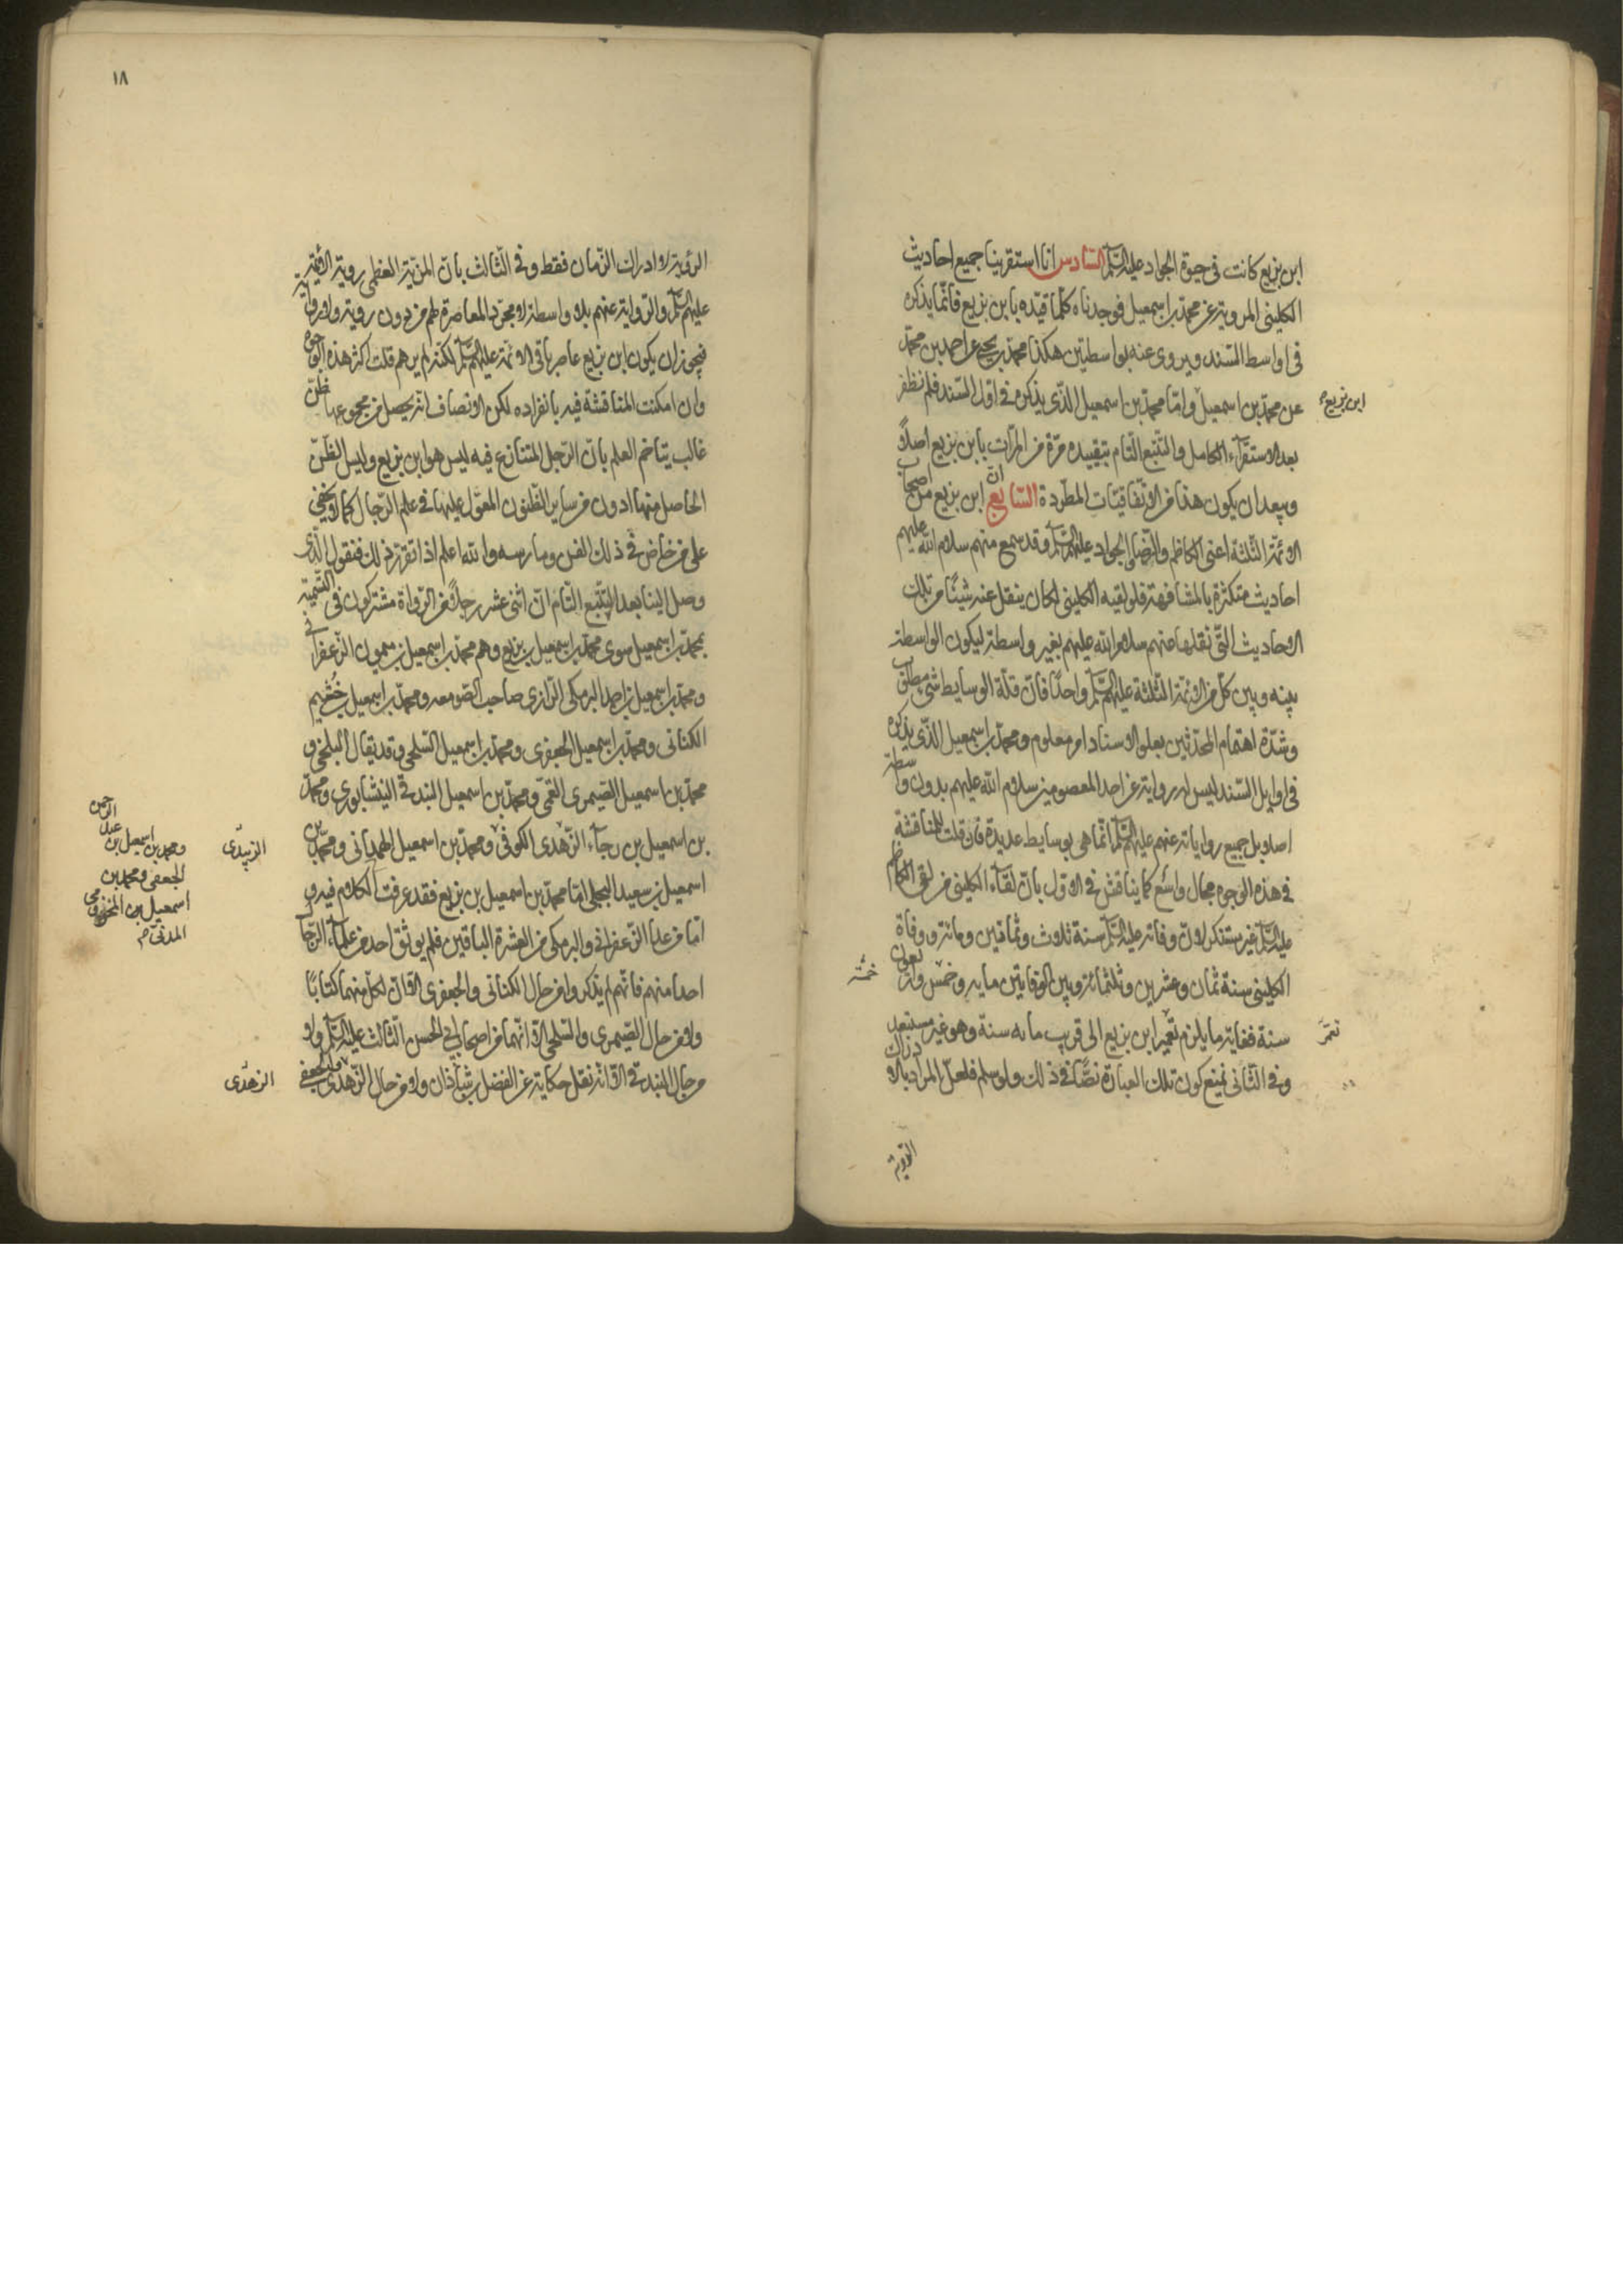 ابن بزيع كانت فى حيوة الجواد عليه السّلم السّادس انا استقرينا جميع احاديث
الكلينى المروية عن محمّد بن اسمعيل فوجدناه كلّما قيّده بابن بزيع فانّما يذكره
فى اواسط السّند ويروى عنه بواسطتين هكذا محمّد بن يحيى عن احمد بن محمّد
عن محمّد بن اسمعيل وامّا محمّد بن اسمعيل الّذى يذكره فى اوّل السّند فلم نظفر
ابن بزيع
بعد الاستقرآء الكامل والتّتبع التّام بتقييده مرّة من المرّات بابن بزيع اصلاً
ويبعد ان يكون هذا من الاتّفاقيّات المطّردة السّابع انّ ابن بزيع من اصحاب
الائمّة الثّلثة اعنى الكاظم والرّضا والجواد عليهم السّلم وقد سمع منهم سلام الله عليهم
احاديث متكثرة بالمشافهة فلو لقيه الكلينى لكان ينقل عنه شيئًا من تلك
الاحاديث الّتى نقلها عنهم سلام الله عليهم بغير واسطة ليكون الواسطة
بينه وبين كلّ من الائمّة الثّلثة عليهم السّلم واحدًا فانّ قلّة الوسايط شئ مطلوب
وشدّة اهتمام المحدّثين بعلو الاسناد امر معلوم ومحمّد بن اسمعيل الّذى يذكره
فى اوايل السّند ليس له رواية عن احد المعصومين سلام الله عليهم بدون واسطة
اصلا بل جميع رواياته عنهم عليهم السّلم انّما هى بوسايط عديدة فان قلت للمناقشة
فى هذه الوجوه مجال واسع كما يناقش فى الاول بانّ لقآء الكلينى من لقى الكاظم
عليه السّلم غير مستنكر لانّ وفاته عليه السّلم سنة ثلاث وثمانين ومائة ووفاة
الكلينى سنة ثمان وعشرين وثلثمائة وبين الوفاتين مايه وخمس واربعون
خمسة
سنة فغاية ما يلزم تعمير ابن بزيع الى قريب مايه سنة وهو غير مستبعد
تعمّر
وفى الثّانى نمنع كون تلك العبارة نصًّا فى ذلك ولو سلم فلعلّ المراد بالادراك
الرّوية
١٨
الرّوية لا ادراك الزّمان فقط وفى الثّالث بانّ المزيّة العظمى روية الائمّة
عليهم السّلم والرّواية عنهم بلا واسطة لا مجرّد المعاصرة لهم من دون روية ولا رواية
فيجوز ان يكون ابن بزيع عاصر باقى الائمّة عليهم السّلم لكنّه لم يرهم قلت اكثر هذه الوجوه
وان امكنت المناقشة فيه بانفراده لكن الانصاف انّه يحصل من مجموعها ظنّ
غالب يتاخم العلم بانّ الرّجل المتنازع فيه ليس هو ابن بزيع وليس الظّنّ
الحاصل منها ادون من ساير الظّنون المعوّل عليها فى علم الرّجال كما لا يخفى
على من خاض فى ذلك الفن ومارسه والله اعلم اذا تقرّر ذلك فنقول الّذى
وصل الينا بعد التّتبّع التّام انّ اثنى عشر رجلاً من الرّواة مشتركون فى التّسمية
بمحمّد بن اسمعيل سوى محمّد بن اسمعيل بن بزيع وهم محمّد بن اسمعيل بن ميمون الزّعفرانى
ومحمّد بن اسمعيل بن احمد البرمكى الرّازى صاحب الصّومعه ومحمّد بن اسمعيل بن خثيم
الكنانى ومحمّد بن اسمعيل الجعفرى ومحمّد بن اسمعيل السّلحى وقد يقال البلخى و
محمّد بن اسمعيل الصّيمرى القمّى ومحمّد بن اسمعيل البندقى النيشابورى ومحمّد
بن اسمعيل بن رجآء الزّهدى الكوفى ومحمّد بن اسمعيل الهمدانى ومحمّد بن
الزّبيدى
ومحمد بن اسمعيل بن عبد الرحمن
الجعفى ومحمد بن
اسمعيل بن المخزومى
المدنى
اسمعيل بن سعيد البجلى امّا محمّد بن اسمعيل بن بزيع فقد عرفت الكلام فيه و
امّا من عدا الزّعفرانى والبرمكى من العشرة الباقين فلم يوثق احد من علمآء الرّجال
احدا منهم فانّهم لم يذكروا من حال الكنانى والجعفرى الّا انّ لكلّ منهما كتابًا
ولا من حال الصّيمرى والسّلحى الّا انّهما من اصحاب ابى الحسن الثّالث عليه السّلم ولا
من حال البندقى الّا انّه نقل حكاية عن الفضل بن شاذان ولا من حال الزّهدى والجعفى
الزهدى